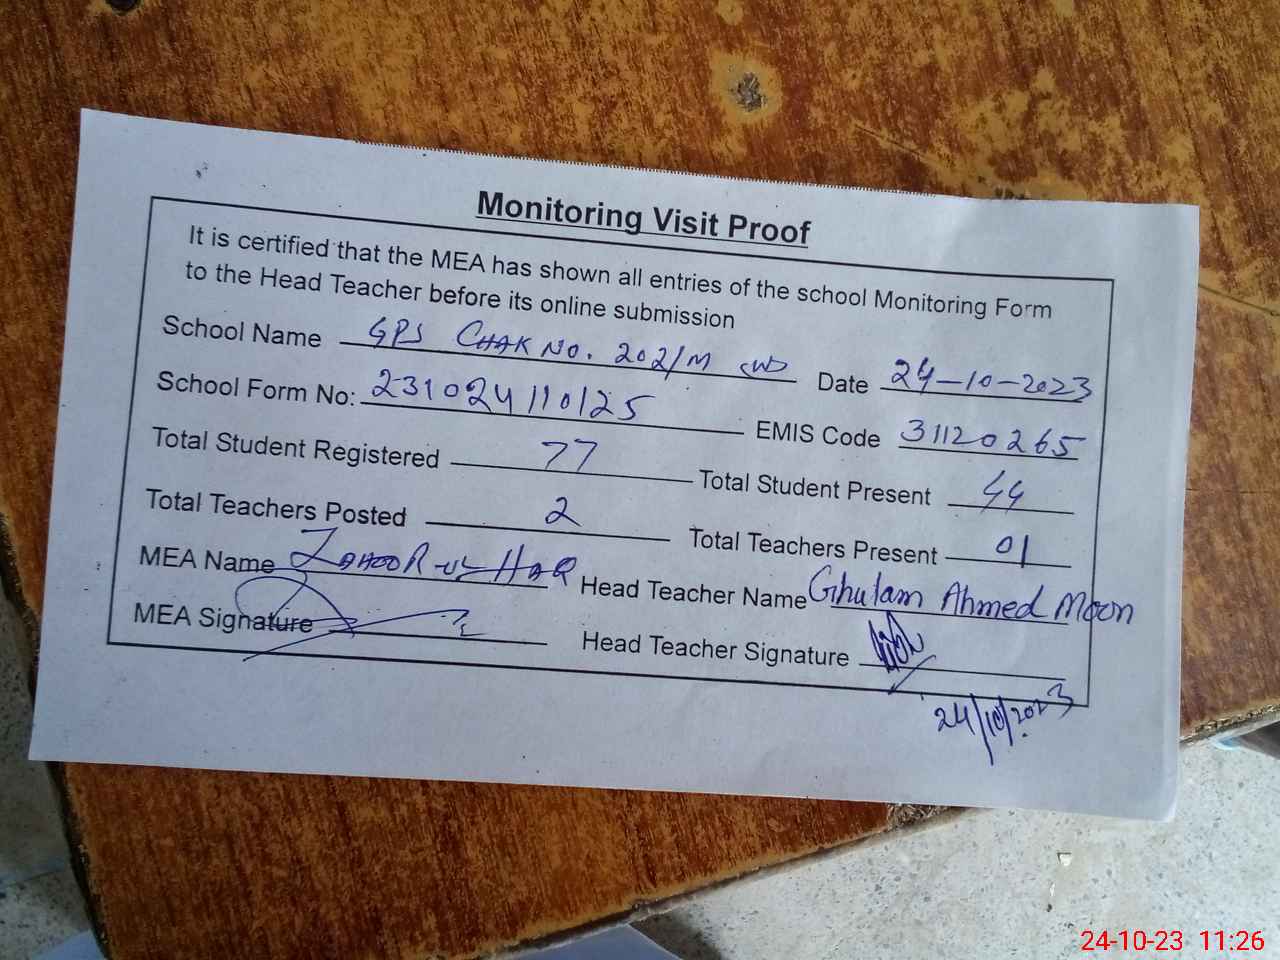 Monitoring Visit Proof
It is certified that the MEA has shown all entries of the school Monitoring Form
to the Head Teacher before its online submission
School Name GPS CHAK NO. 202/M (W) Date 24-10-2023
School Form No: 231024110125 EMIS Code 31120265
Total Student Registered 77 Total Student Present 44
Total Teachers Posted 2 Total Teachers Present 01
MEA Name ZAHOOR-UL-HAQ Head Teacher Name Ghulam Ahmed Moon
MEA Signature Head Teacher Signature
24/10/2023
24-10-23 11:26